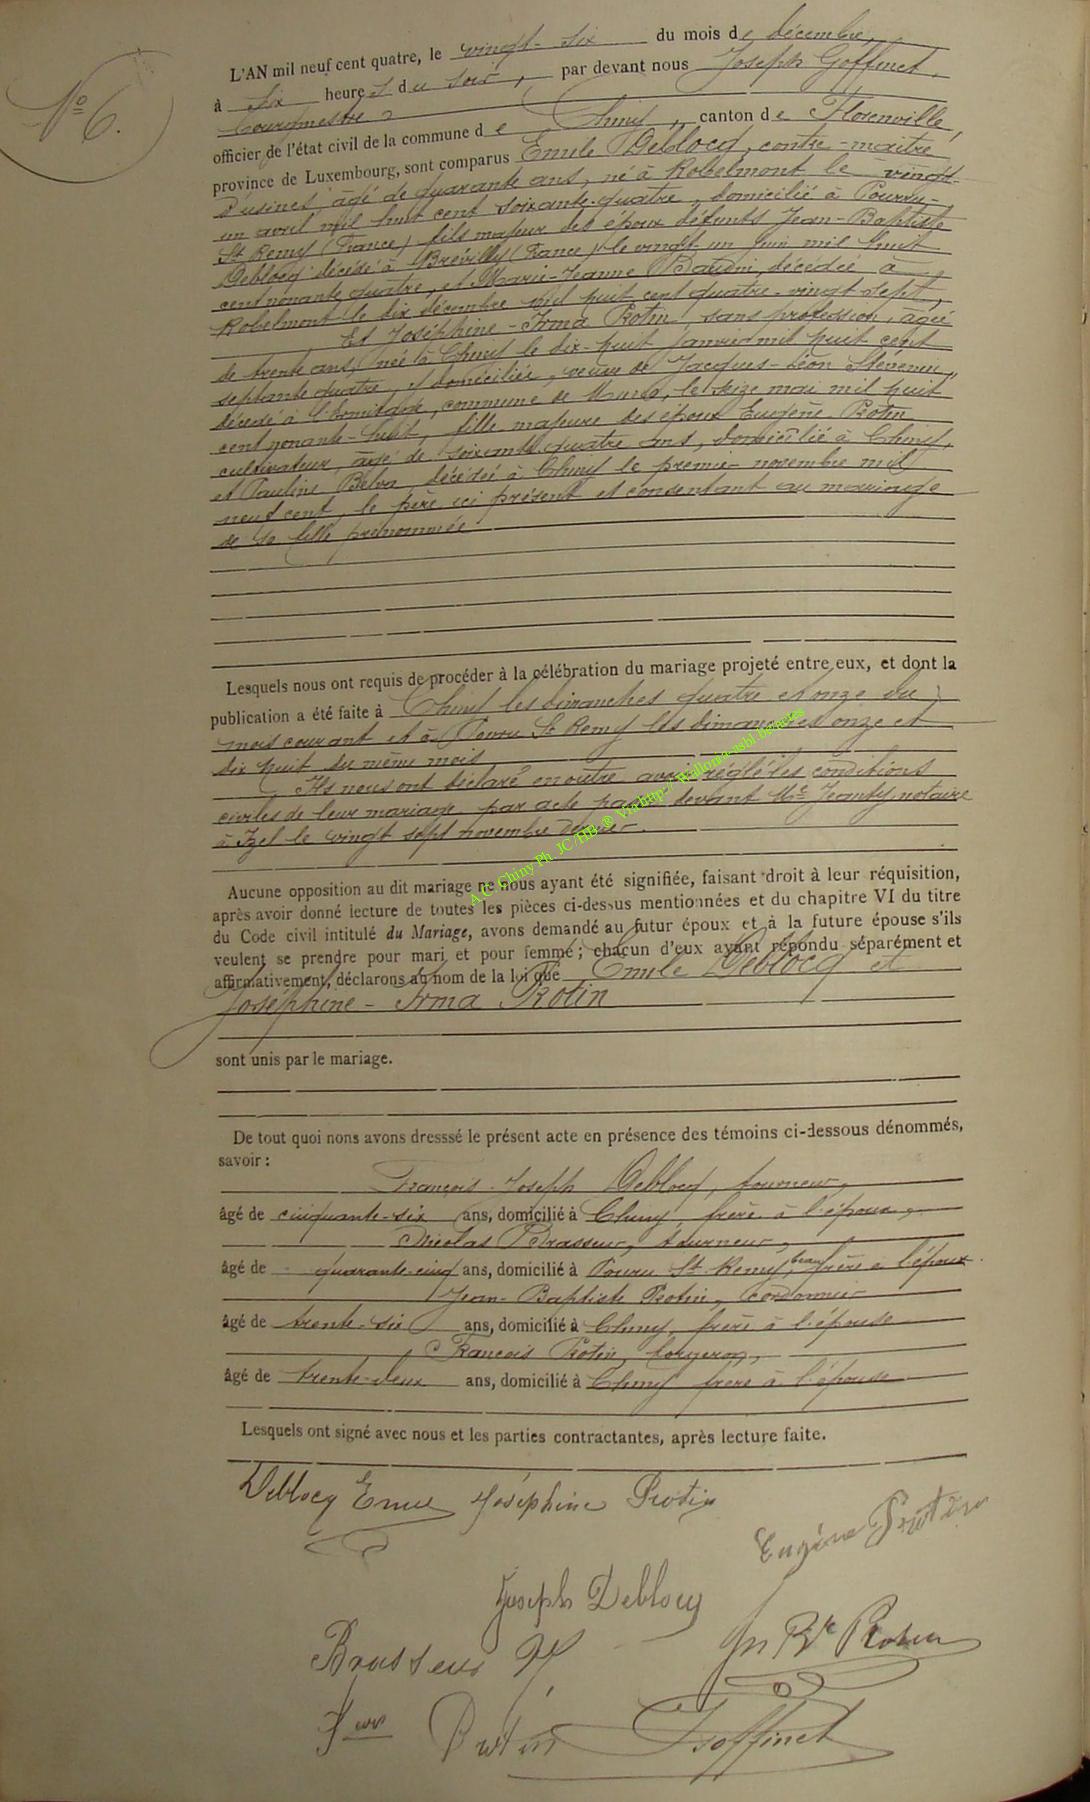 N° 6.
L'AN mil neuf cent quatre, le vingt-six du mois de décembre,
à six heures du soir, par devant nous Joseph Goffinet,
bourgmestre
officier de l'état civil de la commune de Chiny, canton de Florenville,
province de Luxembourg, sont comparus Emile Deblocq, contre-maître
d'usines âgé de quarante ans, né à Robelmont le vingt-
un avril mil huit cent soixante-quatre, domicilié à Pourru-
St Remy (France) fils majeur des époux défunts Jean-Baptiste
Deblocq décédé à Brévilly (France) le vingt un juin mil huit
cent nonante quatre, et Marie-Jeanne Baudni, décédée à
Robelmont le dix décembre mil huit cent quatre-vingt sept,
Et Joséphine-Irma Protin, sans profession, âgée
de trente ans, née à Chiny le dix-huit janvier mil huit cent
septante quatre, y domiciliée, veuve de Jacques-Léon
décédé à l'Ermitage, commune de le seize mai mil huit
cent nonante-huit, fille majeure des époux Eugène Protin
cultivateur, âgé de soixante quatre ans, domicilié à Chiny,
et Pauline décédée à Chiny le premier novembre mil
neuf cent, le père ici présent et consentant au mariage
de sa fille prénommée
Lesquels nous ont requis de procéder à la célébration du mariage projeté entre eux, et dont la
publication a été faite à Chiny les dimanches quatre et onze du
mois courant et à Pouru St Remy les dimanches onze et
dix huit du même mois
Ils nous ont déclaré en outre avoir réglé les conditions
civiles de leur mariage par acte passé devant Me Jeanty, notaire
à Izel le vingt sept novembre dernier.
A.C. Chiny Ph. JC/HB ® Via http://Wallonia-asbl.be/actes
Aucune opposition au dit mariage ne nous ayant été signifiée, faisant droit à leur réquisition,
après avoir donné lecture de toutes les pièces ci-dessus mentionnées et du chapitre VI du titre
du Code civil intitulé du Mariage, avons demandé au futur époux et à la future épouse s'ils
veulent se prendre pour mari et pour femme; chacun d'eux ayant répondu séparément et
affirmativement, déclarons au nom de la loi que Emile Deblocq et
Joséphine-Irma Protin
sont unis par le mariage.
De tout quoi nons avons dresssé le présent acte en présence des témoins ci-dessous dénommés,
savoir :
François-Joseph Deblocq, tourneur,
âgé de cinquante-six ans, domicilié à Chiny, frère à l'époux,
Nicolas Brasseur, tourneur,
âgé de quarante-cinq ans, domicilié à Pouru St-Remy, beau frère à l'époux.
Jean-Baptiste Protin, cordonnier
âgé de trente-six ans, domicilié à Chiny, frère à l'épouse
François Protin, forgeron,
âgé de trente-deux ans, domicilié à Chiny frère à l'épouse
Lesquels ont signé avec nous et les parties contractantes, après lecture faite.
Deblocq Emile Joséphine Protin
Eugène Protin
Joseph Deblocq
Brasseur N Jn Bte Protin
Protin JGoffinet